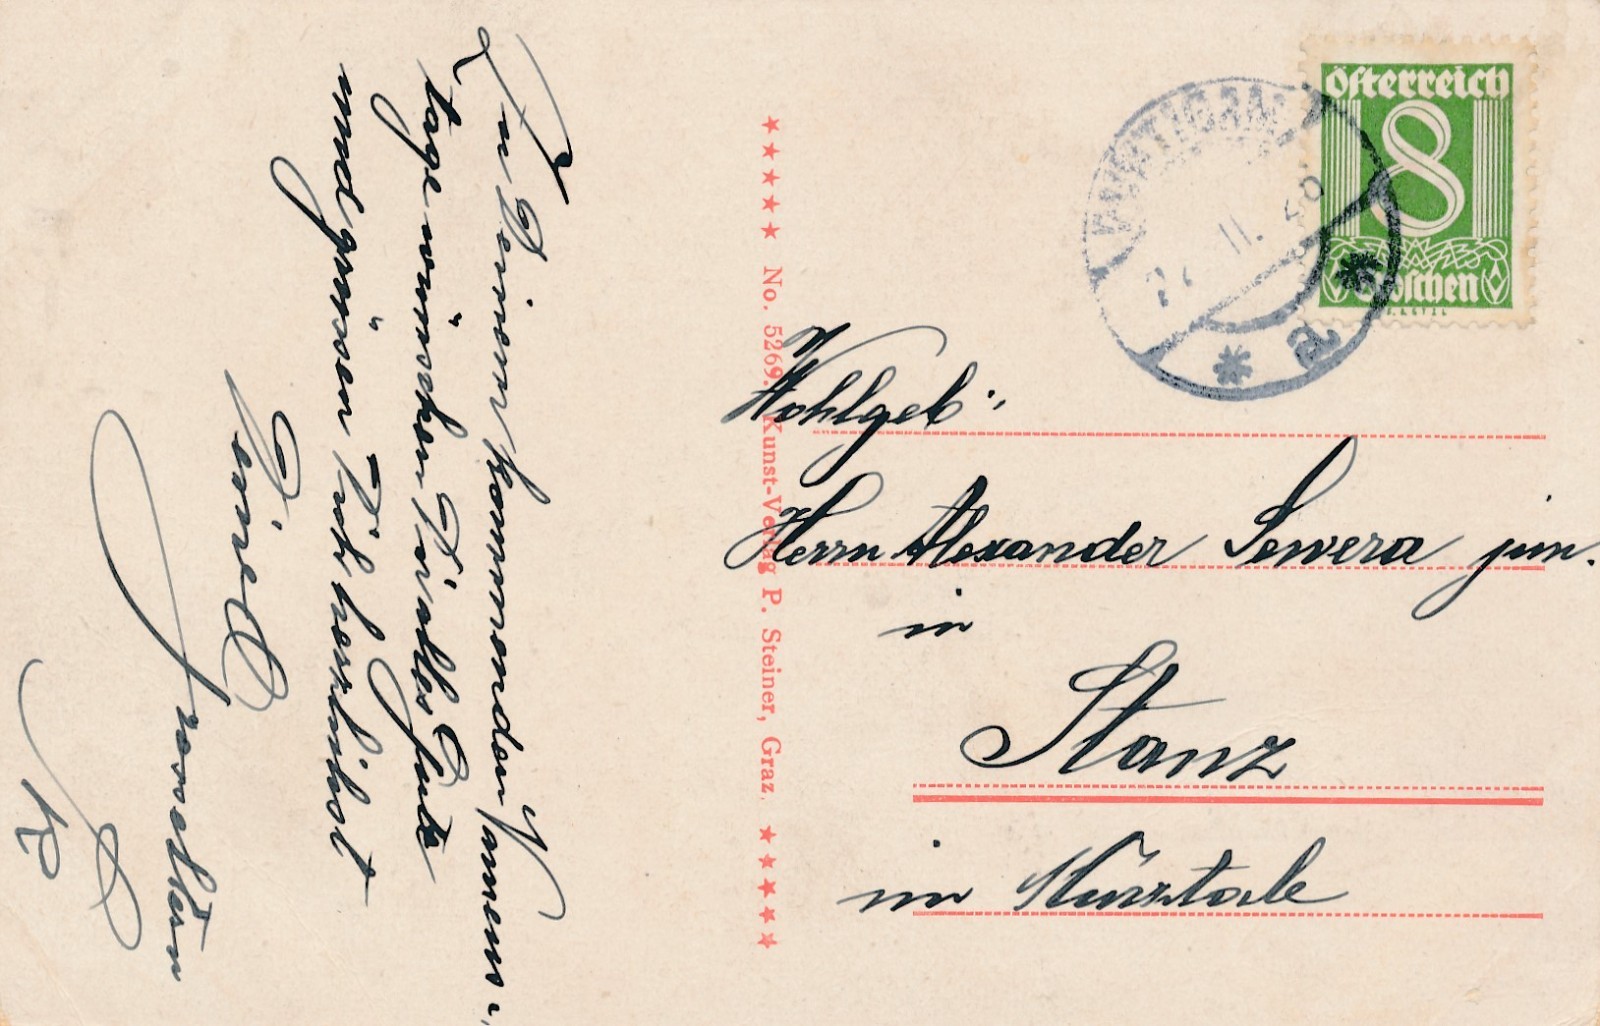 Zu Deinem kommenden Namens-
tage wünschen Dir alles Gute
und grüssen Dich herzlichst
Deine
Grosseltern
Österreich
8
Groschen
II.
★★★★★ No. 5269. Kunst-Verlag P. Steiner, Graz. ★★★★★
Wohlgeb.
Herrn Alexander Sewera jun.
in
Stanz
im Mürztale